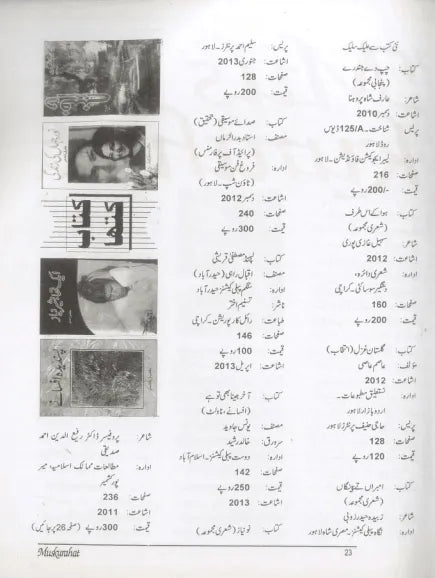 نئی کتب سے علیک سلیک
کتاب: چپ دے جندرے
(پنجابی مجموعہ)
شاعر: عارف شاہ پروہنا
اشاعت: دسمبر 2010
پریس: شناخت۔ 125/A
روڈ لاہور
ادارہ: لہر ایجوکیشن فاؤنڈیشن۔ لاہور
صفحات: 216
قیمت: 200/- روپے
کتاب: ہوا کے اس طرف
(شعری مجموعہ)
شاعر: سہیل غازی پوری
اشاعت: 2012
ادارہ: شعری دائرہ،
سوسائٹی۔ کراچی
صفحات: 160
قیمت: 200 روپے
کتاب: گلستانِ غزل (انتخاب)
مؤلف: عاصم عاصی
اشاعت: 2012
ادارہ: نستعلیق مطبوعات۔
اردو بازار لاہور
پریس: حاجی حنیف پرنٹرز لاہور
صفحات: 128
قیمت: 120 روپے
کتاب:
(شعری مجموعہ)
شاعر: زبیدہ حیدر زیبی
ادارہ: نگاہ پبلی کیشنز۔ مصری شاہ لاہور
پریس: سلیم احمد پرنٹرز۔ لاہور
اشاعت: جنوری 2013
صفحات: 128
قیمت: 200 روپے
کتاب: صدائے موسیقی (تحقیق)
مصنف: استاد بدر الزماں
(پرائیڈ آف پرفارمنس)
ادارہ: فروغ فن موسیقی
(ٹاؤن شپ۔ لاہور)
اشاعت: دسمبر 2012
صفحات: 240
قیمت: 300 روپے
کتاب: مصطفیٰ قریشی
مصنف: اقبال راہی (حیدرآباد)
ادارہ: سنگم پبلی کیشنز حیدرآباد
ناشر: تسنیم اختر
طباعت: رائل کارپوریشن۔ کراچی
صفحات: 146
قیمت: 100 روپے
اشاعت: اپریل 2013
کتاب: آخر جینا بھی تو ہے
(افسانے، ناولٹ)
مصنف: یونس جاوید
سرورق: خالد رشید
ادارہ: دوست پبلی کیشنز۔ اسلام آباد
صفحات: 142
قیمت: 250 روپے
اشاعت: 2013
کتاب: نو نیاز (شعری مجموعہ)
کتاب
کتھا
پسندیدہ افسانے
شاعر: پروفیسر ڈاکٹر رفیع الدین احمد
صدیقی
ادارہ: مطالعات ممالک اسلامیہ میر
پور کشمیر
صفحات: 236
اشاعت: 2011
قیمت: 300 روپے (صفحہ 26 پر جائیں)
Muskurahat
23